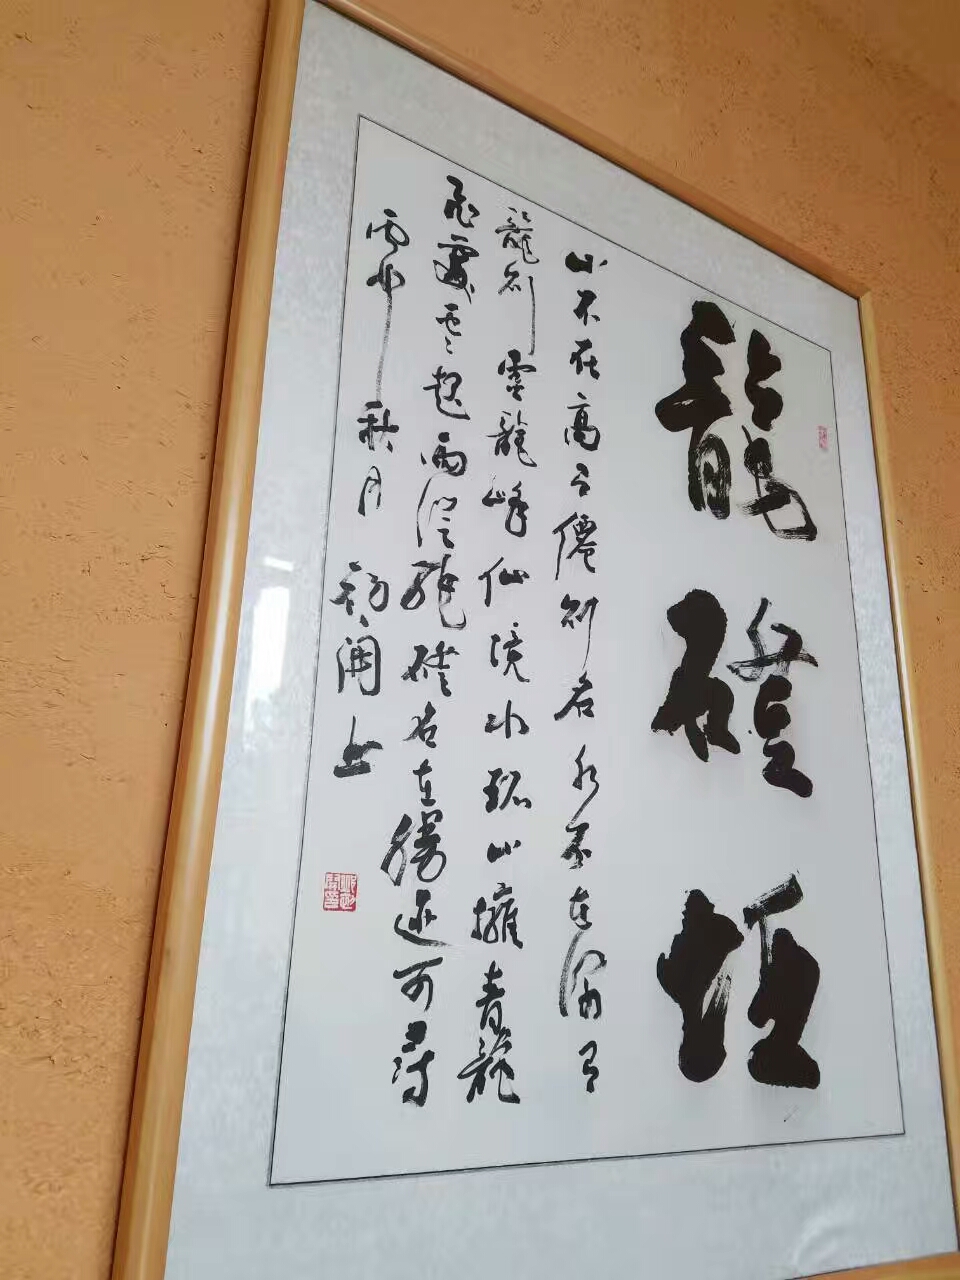 龍磴
山不在高有僊則名水不在深有
龍則靈龍峰仙境水環山擁青龍
飛處雲起雨從龍磴古在勝迹可尋
丙申秋月初開